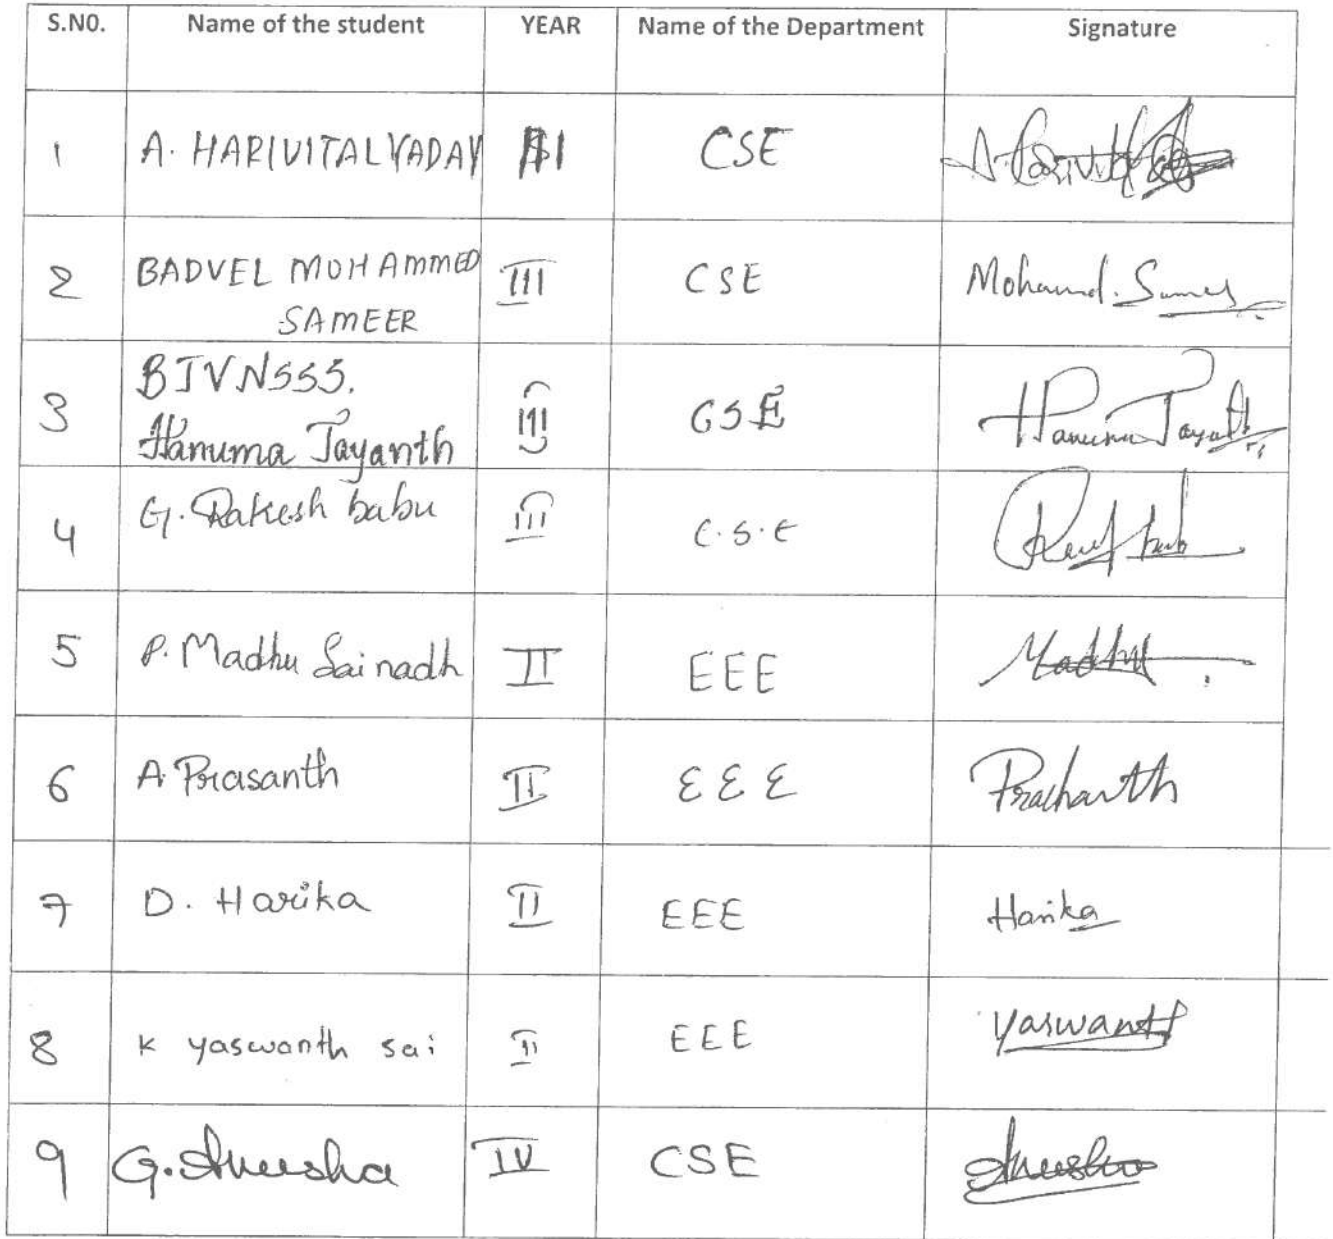 S.NO. Name of the student YEAR Name of the Department Signature
1 A. HARIVITAL YADAV CSE
2 BADVEL MOHAMMED III CSE Mohamad. Sameer
SAMEER
3 BJVNSSS. III CSE Hanuma Jayanth
Hanuma Jayanth
4 G. Rakesh babu III C.S.E
5 P. Madhu Sai nadh II EEE Madhu
6 A. Prasanth II EEE Prashanth
7 D. Harika II EEE Harika
8 K yaswanth sai II EEE Yaswanth
9 G. Anusha IV CSE Anusha